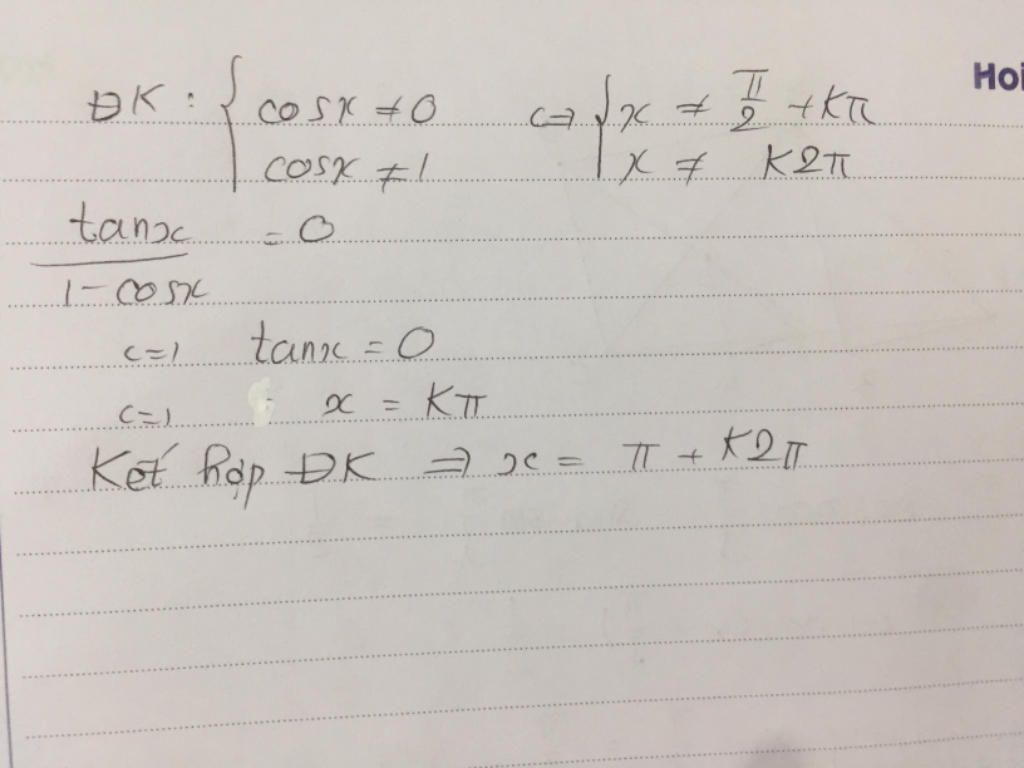 Hoi
ĐK: { cosx ≠ 0 <=> { x ≠ π/2 + kπ
cosx ≠ 1 x ≠ k2π
tanx / 1 - cosx = 0
<=> tanx = 0
<=> x = kπ
Kết hợp ĐK => x = π + k2π